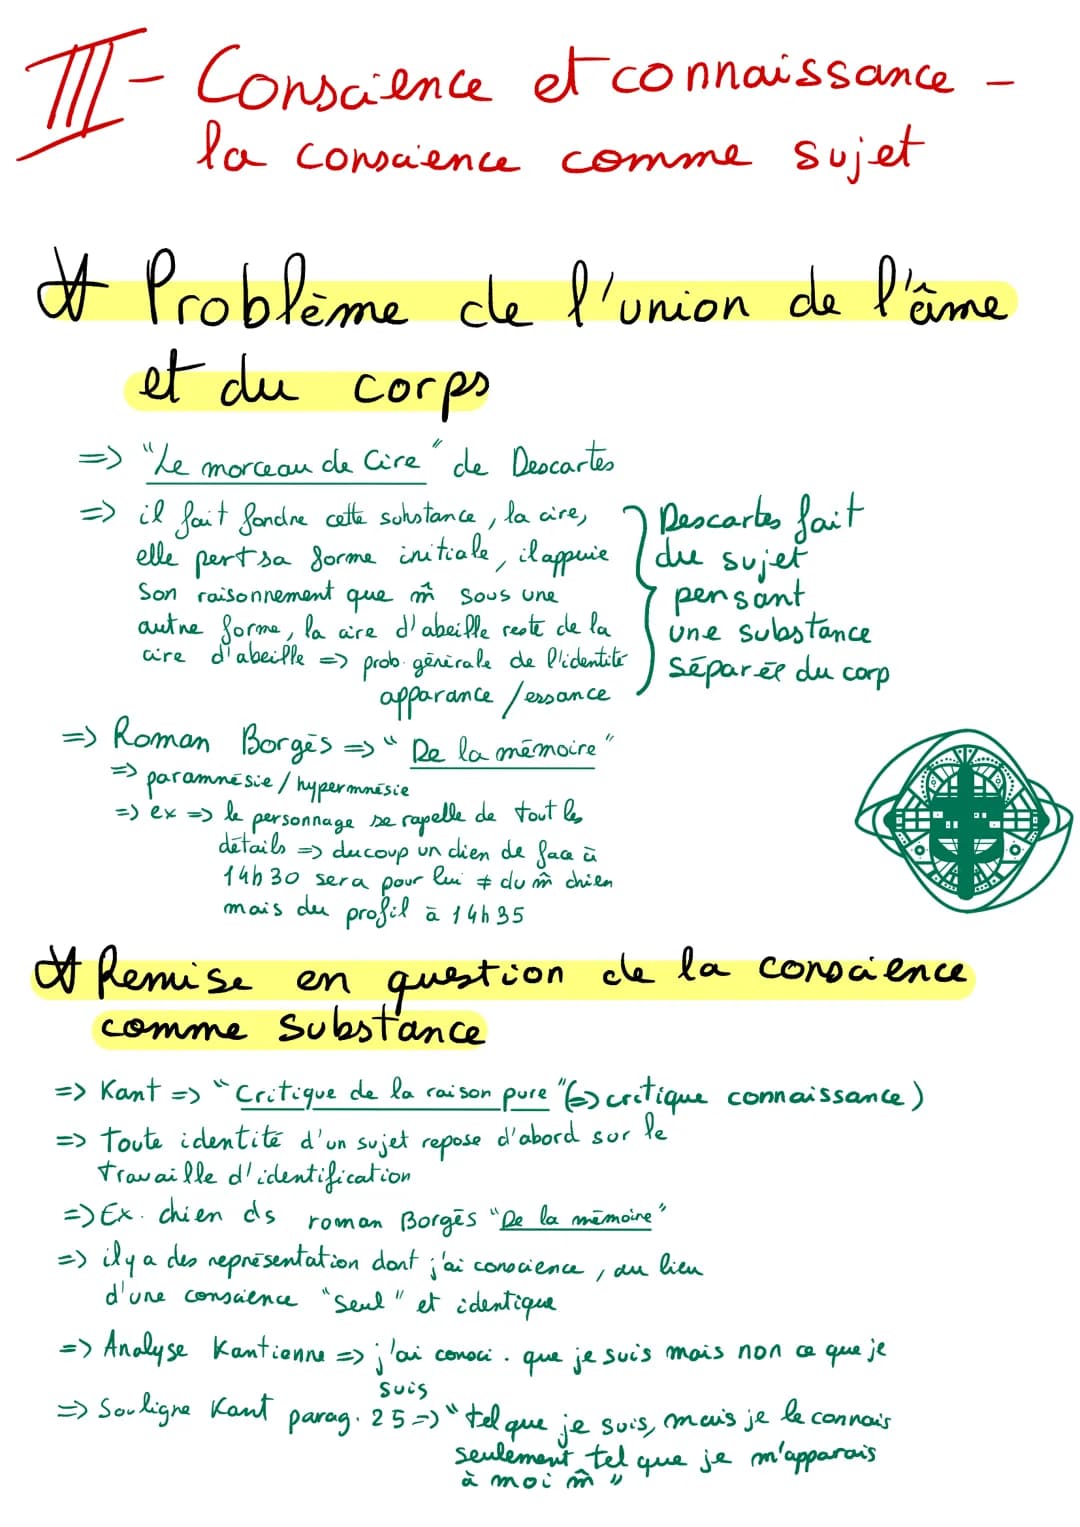 III - Conscience et connaissance -
la conscience comme sujet
Problème de l'union de l'âme
et du corps
=> "Le morceau de Cire" de Descartes
=> il fait fondre cette substance, la cire,
elle pert sa forme initiale, il appuie
son raisonnement que m̂ sous une
autre forme, la cire d'abeille reste de la
cire d'abeille => prob. générale de l'identité
apparance / essance
Descartes fait
du sujet
pensant
une substance
séparée du corp
=> Roman Borgès => "De la mémoire"
=> paramnésie / hypermnésie
=> ex => le personnage se rapelle de tout les
détails => ducoup un chien de face à
14h30 sera pour lui ≠ du m̂ chien
mais du profil à 14h35
Remise en question de la conscience
comme substance
=> Kant => "Critique de la raison pure" (=> critique connaissance)
=> Toute identité d'un sujet repose d'abord sur le
travaille d'identification
=> Ex. chien ds roman Borgès "De la mémoire"
=> il y a des représentation dont j'ai conscience, au lieu
d'une conscience "seul" et identique
=> Analyse Kantienne => j'ai consci. que je suis mais non ce que je
suis
=> Souligne Kant parag. 25 => "tel que je suis, mais je le connais
seulement tel que je m'apparais
à moi m̂"